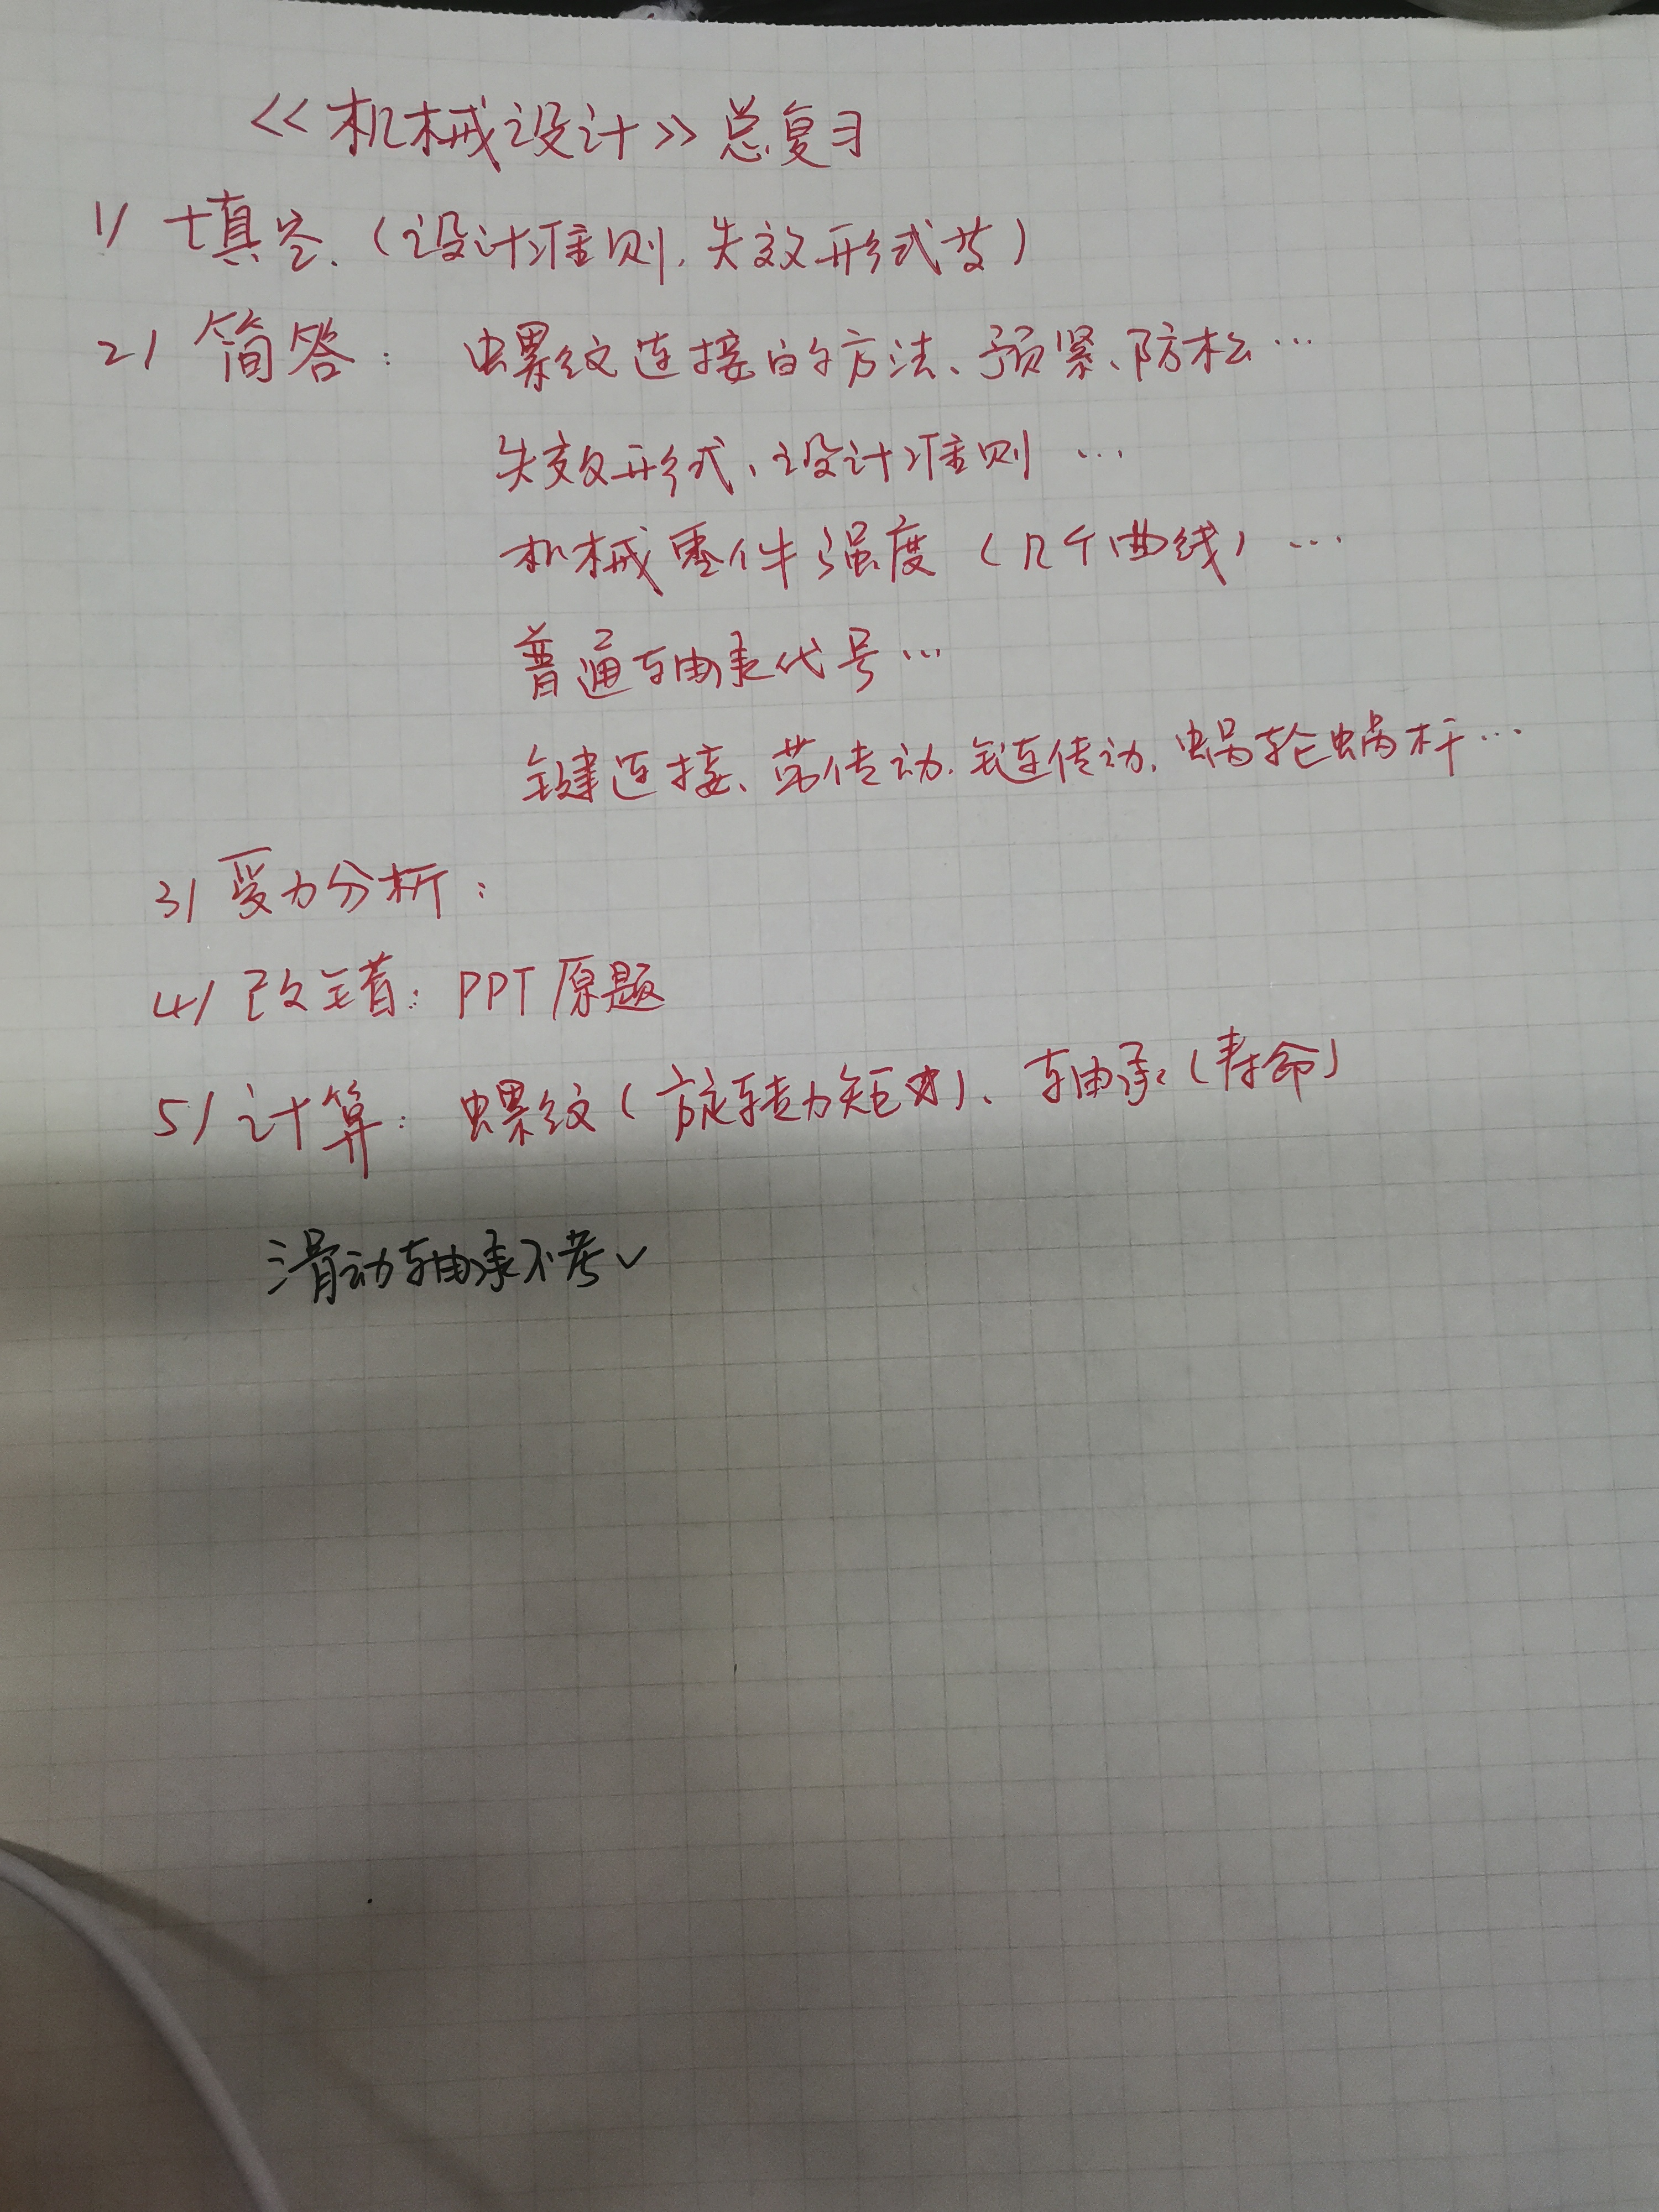 <<机械设计>>总复习
1) 填空.(设计准则.失效形式等)
2) 简答: 螺纹连接的方法、预紧、防松…
失效形式、设计准则…
机械零件强度(几个曲线)…
普通轴承代号…
键连接、带传动.链传动.蜗轮蜗杆…
3) 受力分析:
4) 改错: PPT原题
5) 计算: 螺纹(旋转力矩)、轴承(寿命)
滑动轴承不考✓